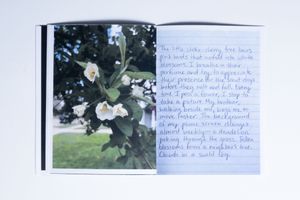 The little choke-cherry tree bears
pink buds that unfold into white
blossoms. I breathe in their
perfume and try to appreciate
their presence for the short days
before they wilt and fall. Every
time I pass a flower, I stop to
take a picture. My brother,
walking beside me, begs me to
move faster. The background
of my phone screen changes
almost weekly—a dandelion
poking through the grass, fallen
blossoms from a neighbor's tree,
clouds in a sunlit sky.